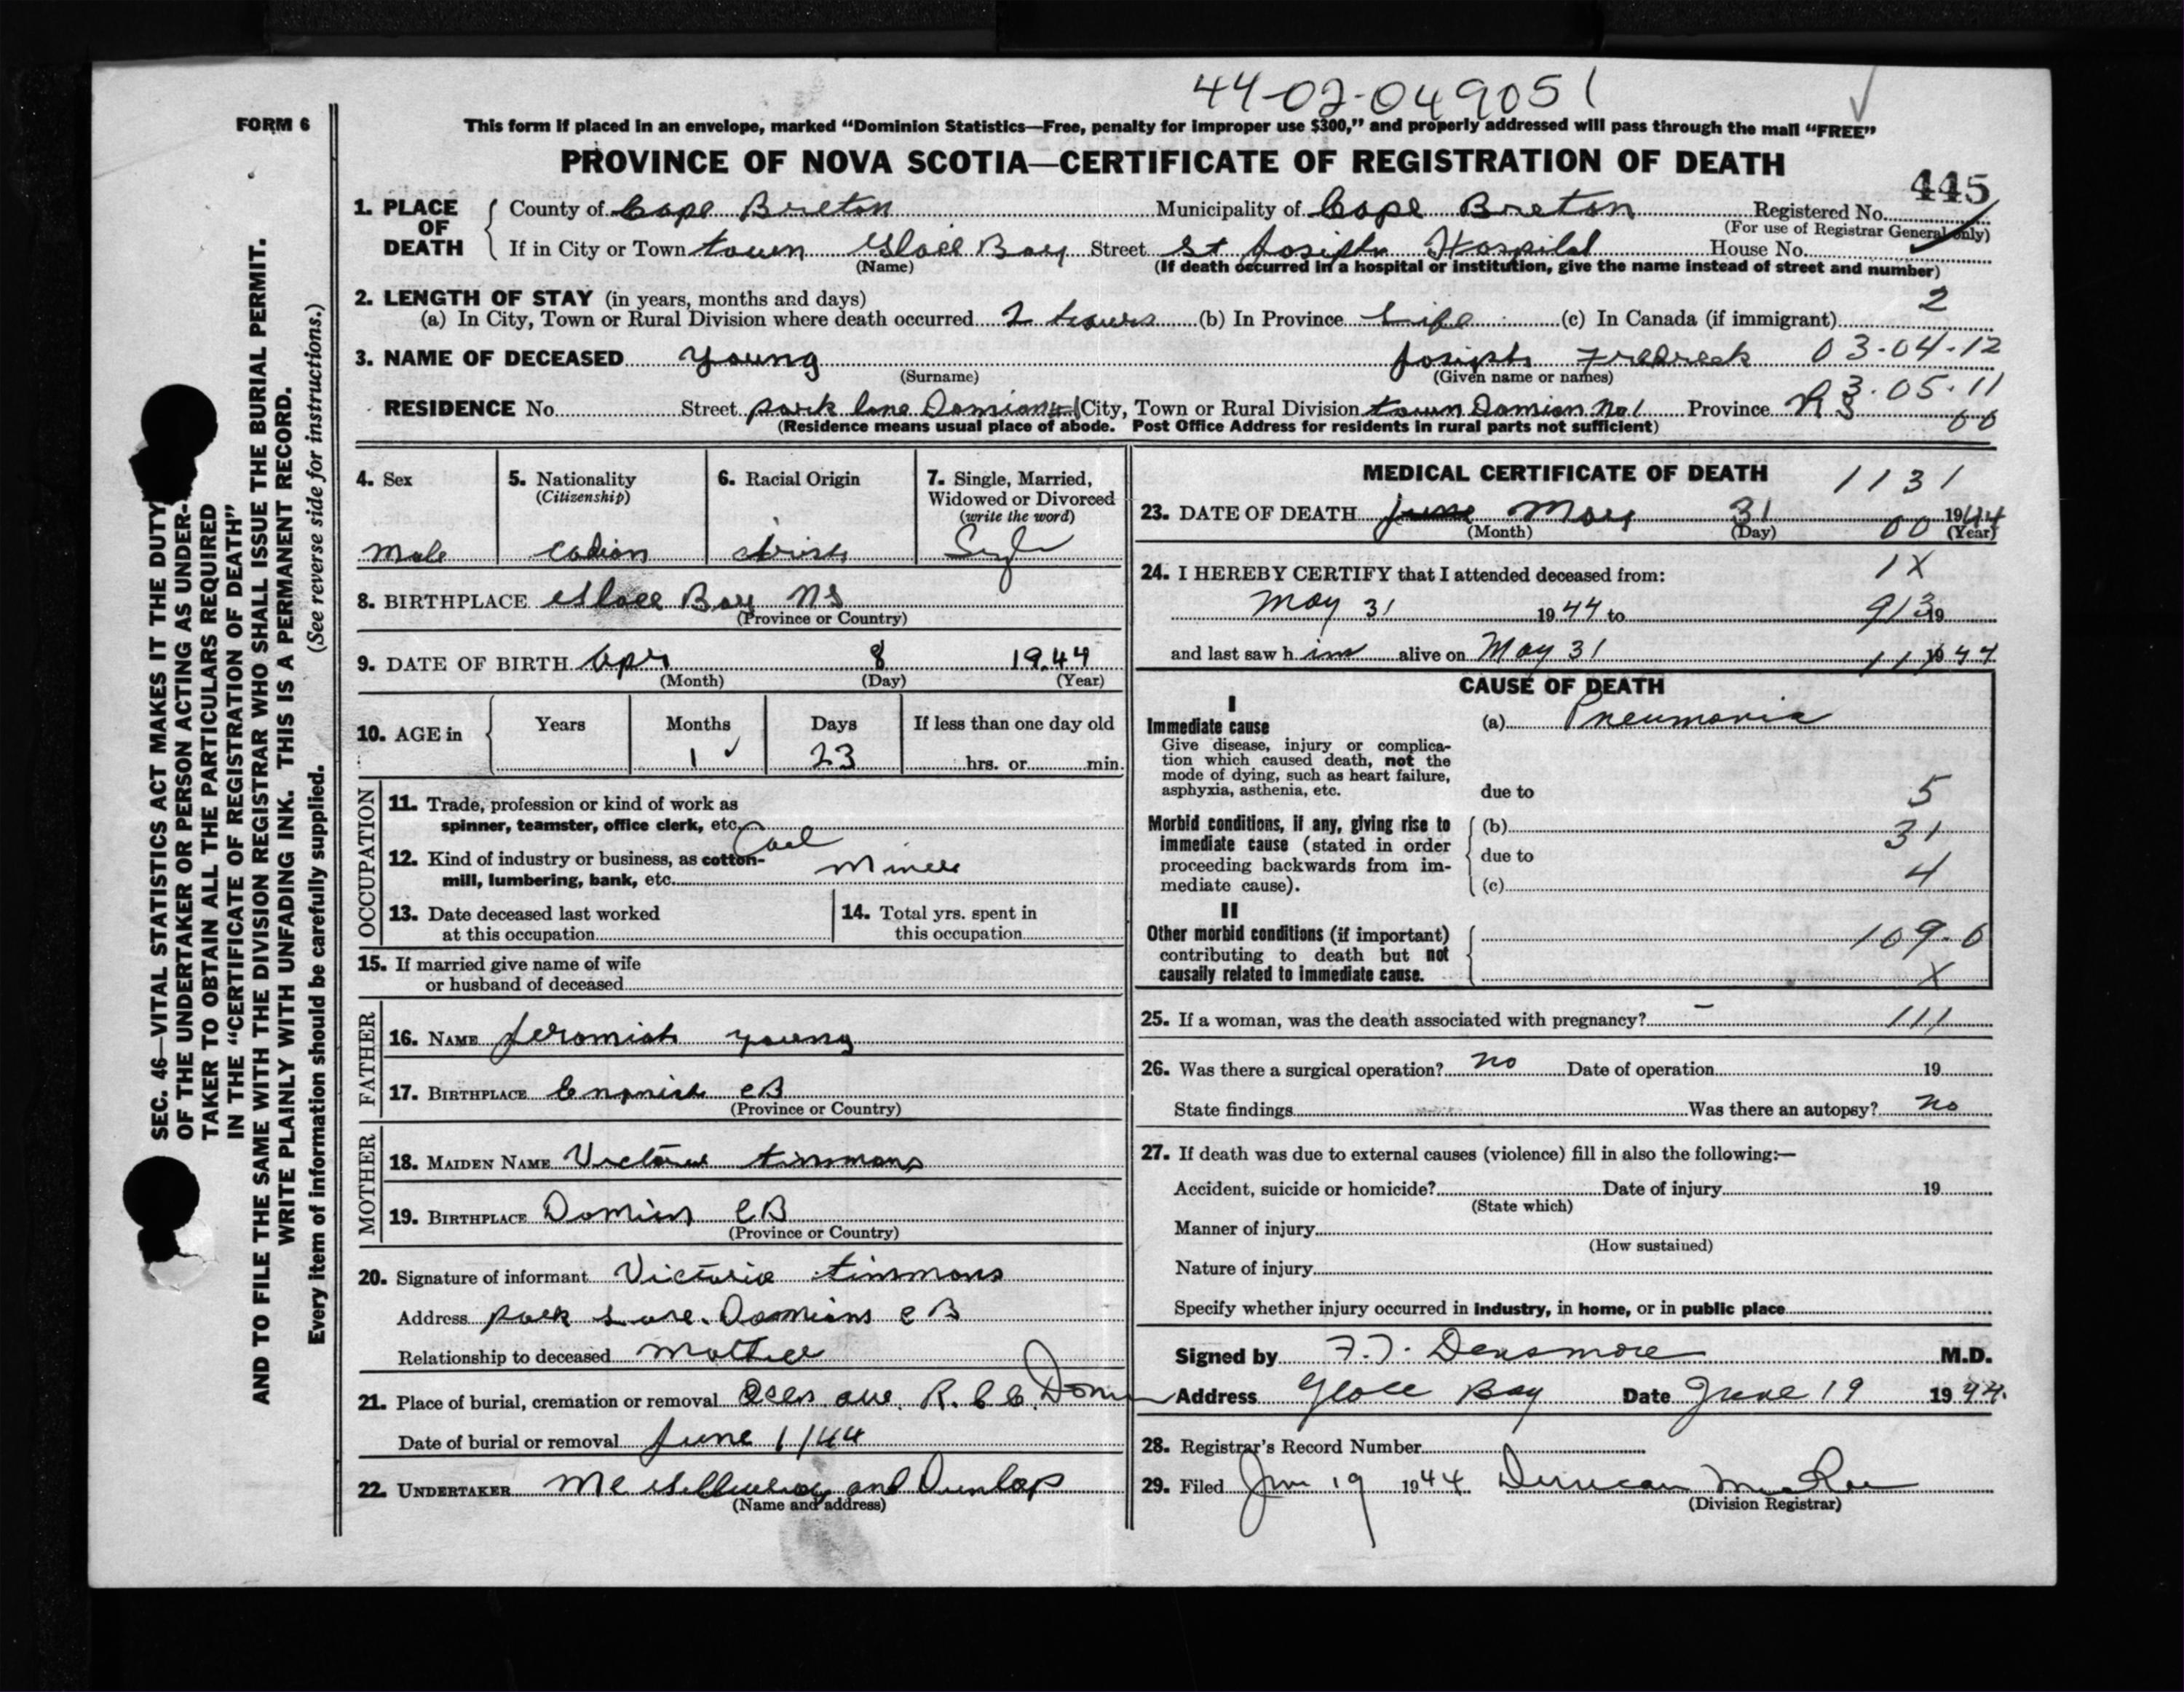 44-02-049051
FORM 6
This form if placed in an envelope, marked “Dominion Statistics—Free, penalty for improper use $300,” and properly addressed will pass through the mail “FREE”
PROVINCE OF NOVA SCOTIA—CERTIFICATE OF REGISTRATION OF DEATH
445
1. PLACE OF DEATH
County of Cape Breton Municipality of Cape Breton Registered No.
(For use of Registrar General only)
If in City or Town town Glace Bay Street St Joseph Hospital House No.
(Name) (If death occurred in a hospital or institution, give the name instead of street and number)
2. LENGTH OF STAY (in years, months and days) 2
(a) In City, Town or Rural Division where death occurred 2 hours (b) In Province Life (c) In Canada (if immigrant)
3. NAME OF DECEASED Young Joseph Fredreck 03-04-12
(Surname) (Given name or names)
3-05-11
RESIDENCE No. Street park lane Domion City, Town or Rural Division town Domion No 1 Province NS 00
(Residence means usual place of abode. Post Office Address for residents in rural parts not sufficient)
4. Sex
Male
5. Nationality
(Citizenship)
Cadian
6. Racial Origin
irish
7. Single, Married,
Widowed or Divorced
(write the word)
Single
8. BIRTHPLACE Glace Bay NS
(Province or Country)
9. DATE OF BIRTH Apr 8 1944
(Month) (Day) (Year)
10. AGE in Years Months Days If less than one day old
1 23 hrs. or min.
OCCUPATION
11. Trade, profession or kind of work as
spinner, teamster, office clerk, etc.
12. Kind of industry or business, as cotton-
mill, lumbering, bank, etc. Coal
13. Date deceased last worked
at this occupation
14. Total yrs. spent in
this occupation
15. If married give name of wife
or husband of deceased
FATHER
16. NAME Jeromiah young
17. BIRTHPLACE CB
(Province or Country)
MOTHER
18. MAIDEN NAME timmons
19. BIRTHPLACE Domion CB
(Province or Country)
20. Signature of informant Victoria timmons
Address park Lane. Domion CB
Relationship to deceased Mother
21. Place of burial, cremation or removal ave. R.C.C. Dom
Date of burial or removal June 1/44
22. UNDERTAKER and Dunlop
(Name and address)
MEDICAL CERTIFICATE OF DEATH 1131
23. DATE OF DEATH June May 31 00 1944
(Month) (Day) (Year)
24. I HEREBY CERTIFY that I attended deceased from: 1X
May 31 1944 to 913 19
and last saw h im alive on May 31 11 1944
CAUSE OF DEATH
I
Immediate cause
Give disease, injury or complica-
tion which caused death, not the
mode of dying, such as heart failure,
asphyxia, asthenia, etc.
(a) Pneumonia
due to 5
Morbid conditions, if any, giving rise to
immediate cause (stated in order
proceeding backwards from im-
mediate cause).
(b) 31
due to
(c) 4
II
Other morbid conditions (if important)
contributing to death but not
causally related to immediate cause.
109-0
X
25. If a woman, was the death associated with pregnancy? – 111
26. Was there a surgical operation? no Date of operation 19
State findings Was there an autopsy? no
27. If death was due to external causes (violence) fill in also the following:—
Accident, suicide or homicide? Date of injury 19
(State which)
Manner of injury
(How sustained)
Nature of injury
Specify whether injury occurred in industry, in home, or in public place
Signed by F.T. Densmore M.D.
Address Glace Bay Date June 19 1944.
28. Registrar's Record Number
29. Filed Jun 19 1944 Duncan MacRae
(Division Registrar)
SEC. 46—VITAL STATISTICS ACT MAKES IT THE DUTY
OF THE UNDERTAKER OR PERSON ACTING AS UNDER-
TAKER TO OBTAIN ALL THE PARTICULARS REQUIRED
IN THE “CERTIFICATE OF REGISTRATION OF DEATH”
AND TO FILE THE SAME WITH THE DIVISION REGISTRAR WHO SHALL ISSUE THE BURIAL PERMIT.
WRITE PLAINLY WITH UNFADING INK. THIS IS A PERMANENT RECORD.
Every item of information should be carefully supplied. (See reverse side for instructions.)